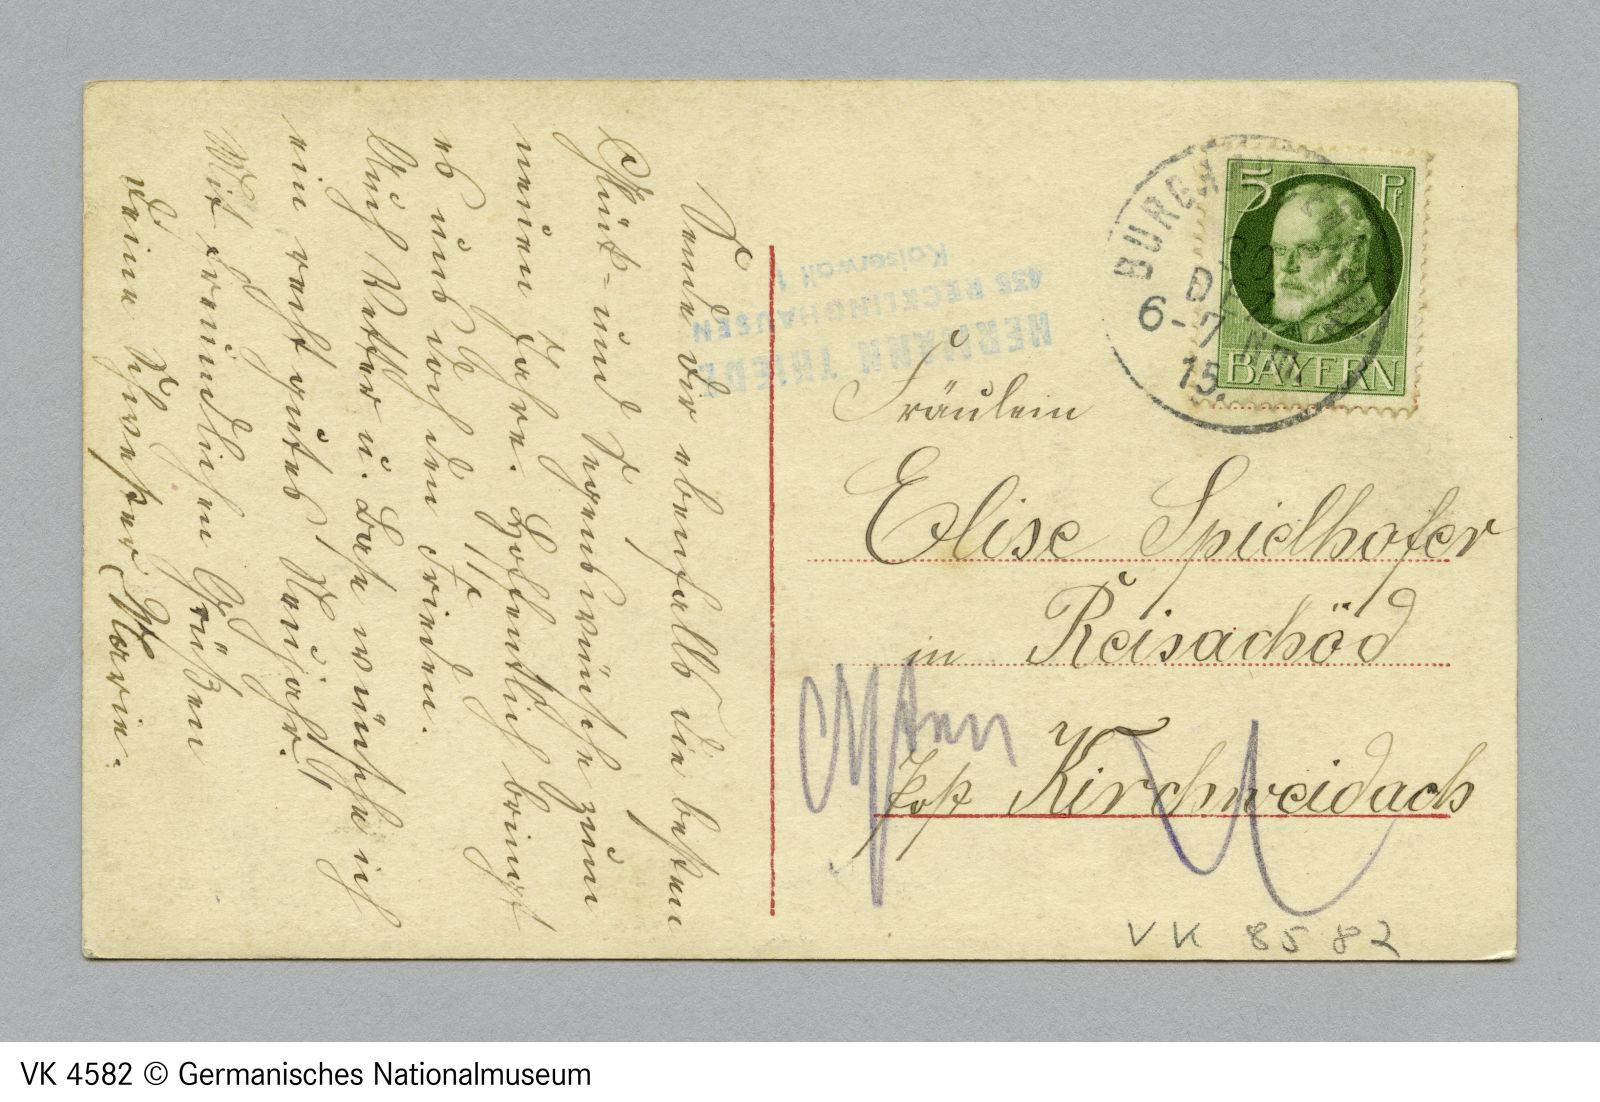 Sende dir ebenfalls die besten
Glück- und Segenswünsche zum
neuen Jahre. Hoffentlich bringt
es uns doch den Frieden.
Auch Vetter u. Base wünsche ich
ein recht gutes Neujahr!
Mit freundlichen Grüßen
deine Schwester Marie.
HERMANN THIEDE
435 RECKLINGHAUSEN
Kaiserwall
5 Pf
BAYERN
6-7
15.
Fräulein
Elise Spielhofer
in Reisachöd
Post Kirchweidach
VK 8582
VK 4582 © Germanisches Nationalmuseum